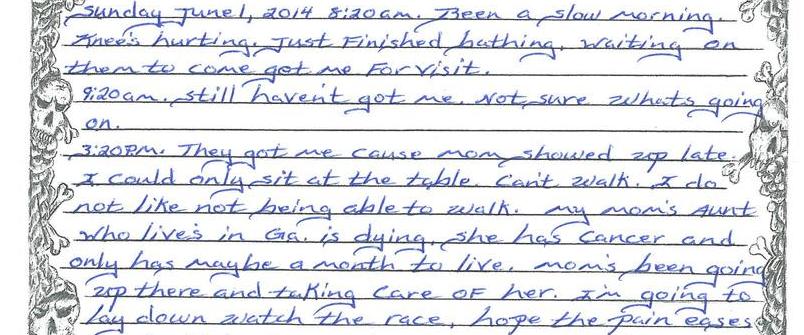 Sunday June 1, 2014 8:20am. Been a slow morning.
Knee's hurting. Just Finished bathing. Waiting on
them to come got me For visit.
9:20am. Still haven't got me. Not sure whats going
on.
3:20PM. They got me cause mom showed up late.
I could only sit at the table. Can't walk. I do
not like not being able to walk. My mom's Aunt
who live's in Ga. is dying. She has cancer and
only has maybe a month to live. Mom's been going
up there and taking care of her. I'm going to
lay down watch the race, hope the pain eases